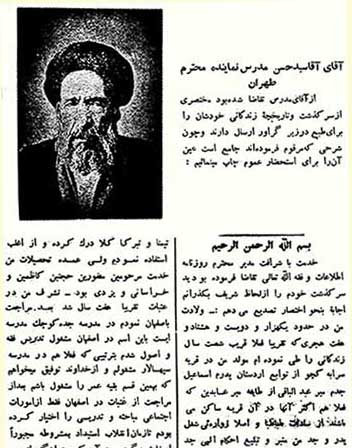 آقای آقاسیدحسن مدرس نماینده محترم
طهران
از آقای مدرس تقاضا شده بود مختصری
از سرگذشت و تاریخچهٔ زندگانی خودشان را
برای طبع در زیر گراور ارسال دارند و چون
شرحی که مرقوم فرموده‌اند جامع است عین
آن را برای استحضار عموم چاپ مینمائیم :
بسم الله الرحمن الرحیم
خدمت با شرافت مدیر محترم روزنامه
اطلاعات وفقه الله تعالی تقاضا فرموده بودید
سرگذشت خودم را از لحاظ شریف بگذرانم
اجابة بنحو اختصار تصدیع می دهم :ـ ولادت
من در حدود یکهزار و دویست و هشتاد و
هفت هجری که تقریبا فعلا قریب شصت سال
زندگانی را طی نموده ام مولد من در قریه
سرابه کچو از توابع اردستان پدرم اسمعیل
جدم میر عبد الباقی از طایفه میر عابدین که
فعلا هم اکثر آنها در آن قریه ساکن می
باشند از سادات طباطبا و اصلا زواره‌ئی شغل
پدر و جد من منبر و تبلیغ احکام الهی جد
تیمنا و تبرکا کلا درك کرده و از اغلب
استفاده نمودم ولی عمده تحصیلات من
خدمت مرحومین مغفورین حجتین کاظمین و
خراسانی و یزدی بود ـ تشرف من در
عتبات تقریبا هفت سال شد بعد مراجعت
باصفهان نمودم در مدرسه جده کوچك مدرسه
ایست باین اسم در اصفهان مشغول تدریس فقه
و اصول شدم بترتیبی که فعلا هم در مدرسه
سپهسالار مشغولم و از خداوند توفیق میخواهم
که بهمین قسم بقیه عمر را مشغول باشم بعد از
مراجعت از عتبات در اصفهان فقط از امورات
اجتماعی مباحثه و تدریس را اختیار کرده
بودم تا زمان انقلاب استبداد بمشروطه مجبوراً